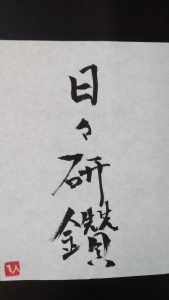 日々研鑽
ひ